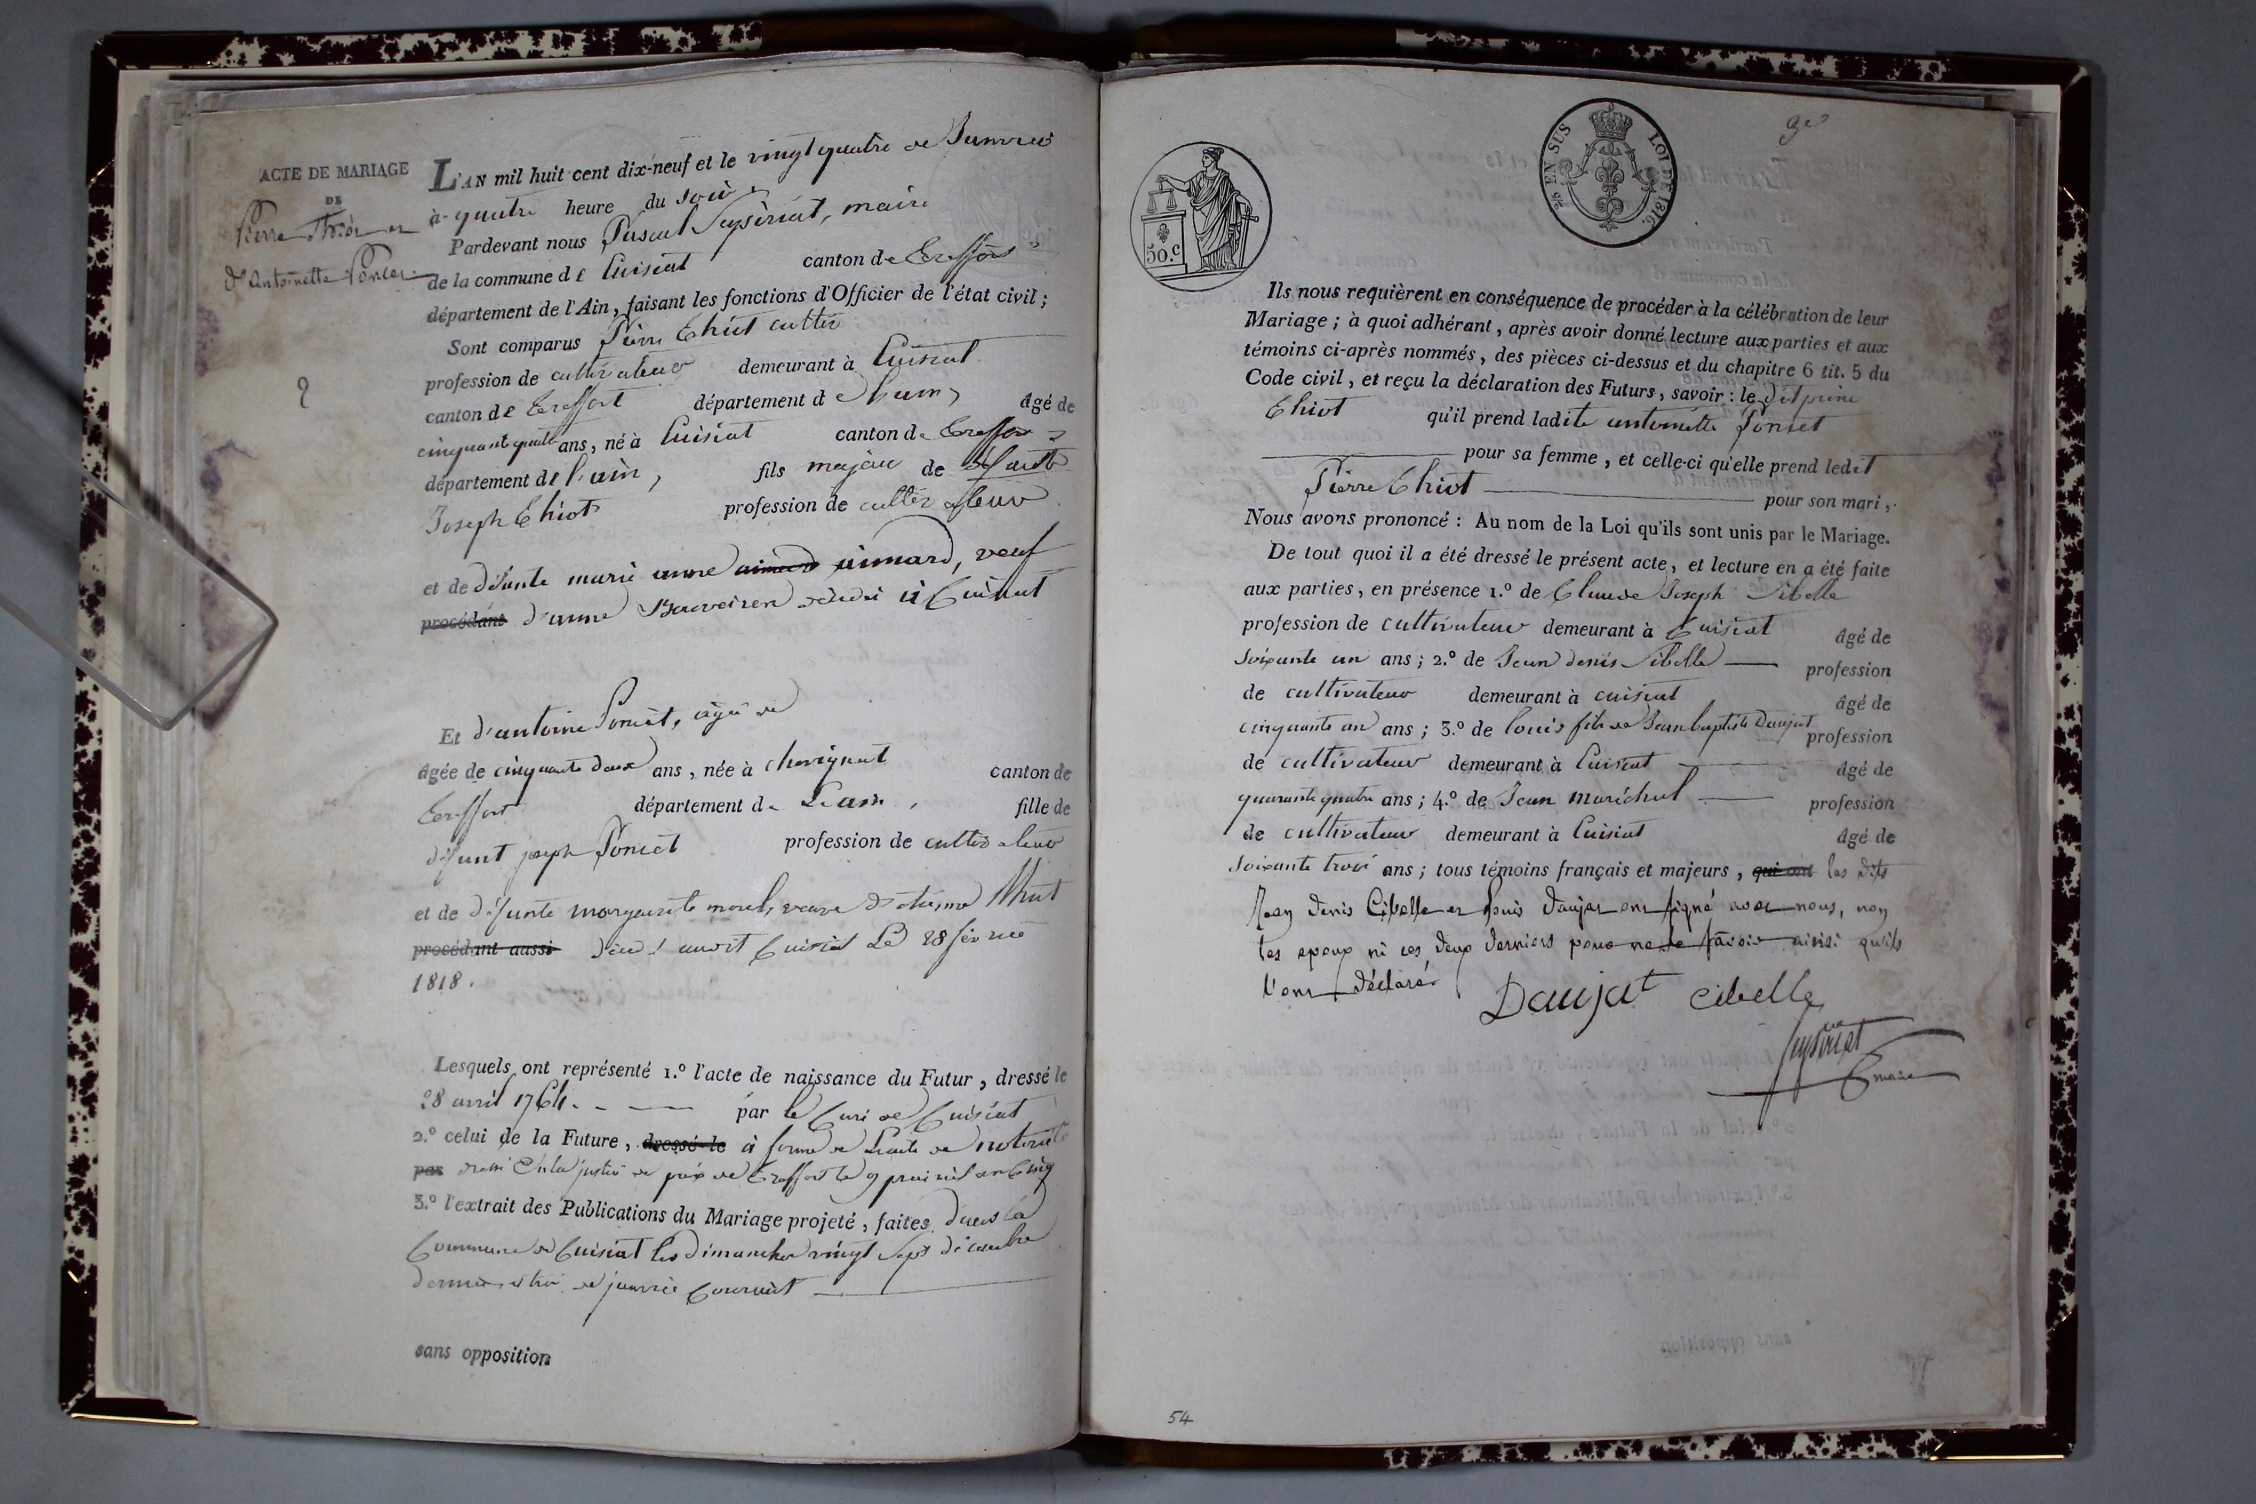 ACTE DE MARIAGE
DE
Pierre Thiot et
d'Antoinette Poncet
2
L'AN mil huit cent dix-neuf et le vingt quatre de Janvier
à quatre heure du soir
Pardevant nous Pascal Seyseriat, maire
de la commune de Cuisiat canton de Treffort
département de l'Ain, faisant les fonctions d'Officier de l'état civil;
Sont comparus Pierre Thiot cultiv
profession de cultivateur demeurant à Cuisiat
canton de Treffort département de l'ain, âgé de
cinquante quatre ans, né à Cuisiat canton de Treffort
département de l'ain, fils majeur de défunt
Joseph Thiot profession de cultivateur
et de défunte marie anne aimard aimard, veuf
procédant d'anne décédé à Cuisiat
Et d'antoine Poncet, agée de
âgée de cinquante deux ans, née à chevignat canton de
Treffort département de L'ain, fille de
défunt joseph Poncet profession de cultivateur
et de défunte margueritte morel, veuve d'etienne
procédant aussi décédé Cuisiat Le 28 février
1818.
Lesquels ont représenté 1.° l'acte de naissance du Futur, dressé le
28 avril 1764. par le Curé de Cuisiat
2.° celui de la Future, dressé le à forme de L'acte de notoriété
par dressé en la justice de paix de Treffort le 9 prairial an Cinq
3.° l'extrait des Publications du Mariage projeté, faites dans la
Commune de Cuisiat les Dimanches vingt Sept décembre
dernier et trois de janvier Courant
sans opposition
50.c
25 EN SUS LOI DE 1816.
Ils nous requièrent en conséquence de procéder à la célébration de leur
Mariage; à quoi adhérant, après avoir donné lecture aux parties et aux
témoins ci-après nommés, des pièces ci-dessus et du chapitre 6 tit. 5 du
Code civil, et reçu la déclaration des Futurs, savoir: le dit pierre
Thiot qu'il prend ladite antoinette Poncet
pour sa femme, et celle-ci qu'elle prend ledit
Pierre Thiot pour son mari,
Nous avons prononcé: Au nom de la Loi qu'ils sont unis par le Mariage.
De tout quoi il a été dressé le présent acte, et lecture en a été faite
aux parties, en présence 1.° de Claude Joseph Sibelle
profession de cultivateur demeurant à Cuisiat âgé de
soixante un ans; 2.° de Jean denis Sibelle profession
de cultivateur demeurant à cuisiat âgé de
cinquante un ans; 3.° de louis fils de Jean baptiste Daujat profession
de cultivateur demeurant à Cuisiat âgé de
quarante quatre ans; 4.° de Jean maréchal profession
de cultivateur demeurant à Cuisiat âgé de
soixante trois ans; tous témoins français et majeurs, qui ont les dits
Jean Denis Cibelle et Louis Daujat ont signé avec nous, non
les epoux ni les deux derniers pour ne le savoir ainsi qu'ils
l'ont déclaré
Daujat Cibelle
Seyseriat
maire
54